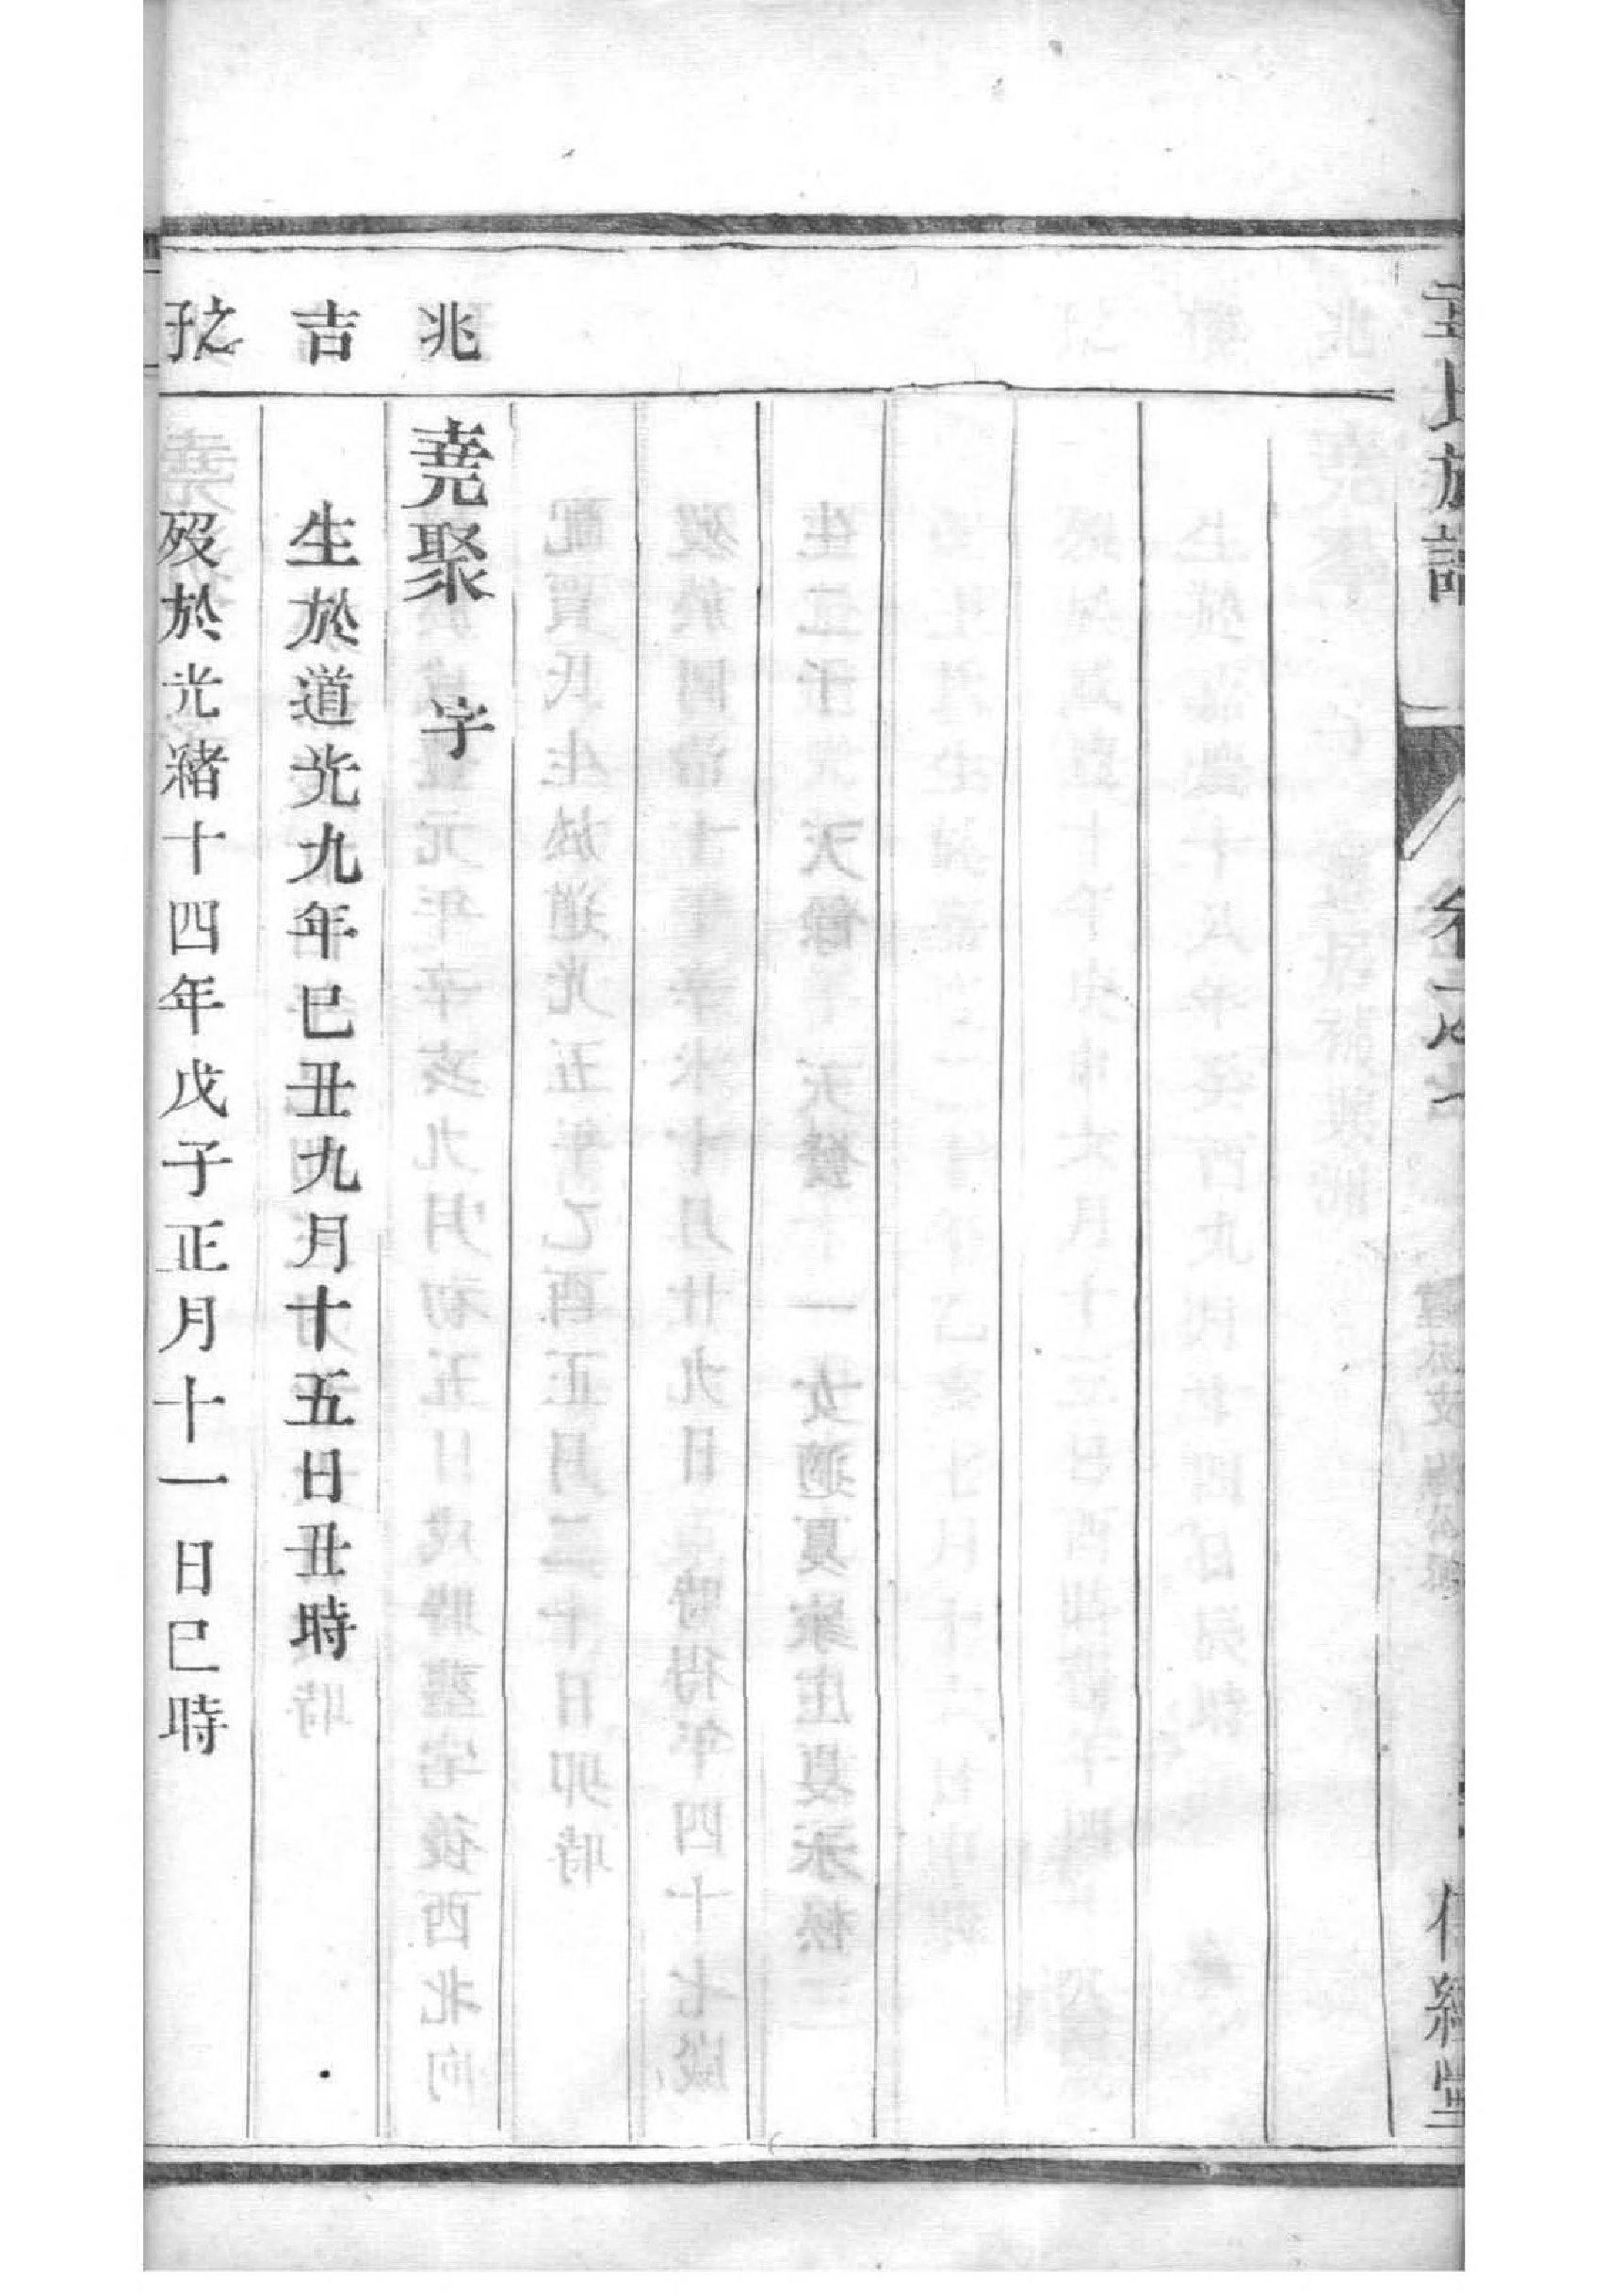 氏族譜
兆吉之子
尭聚 字
生於道光九年巳丑九月十五日丑時
歿於光緒十四年戊子正月十一日巳時